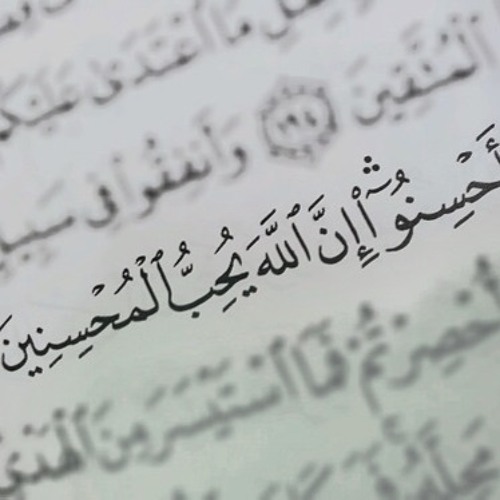 مَا ٱعْتَدَىٰ عَلَيْكُمْ
ٱلْمُتَّقِينَ ١٩٤ وَأَنفِقُوا۟ فِى سَبِيلِ
أَحْسِنُوٓا۟ۛ إِنَّ ٱللَّهَ يُحِبُّ ٱلْمُحْسِنِينَ
أُحْصِرْتُمْ فَمَا ٱسْتَيْسَرَ مِنَ ٱلْهَدْىِ
مَحِلَّهُۥ